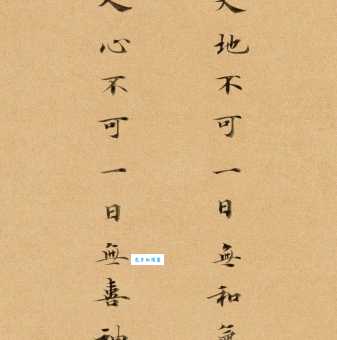 天地不可一日無和氣
人心不可一日無喜神